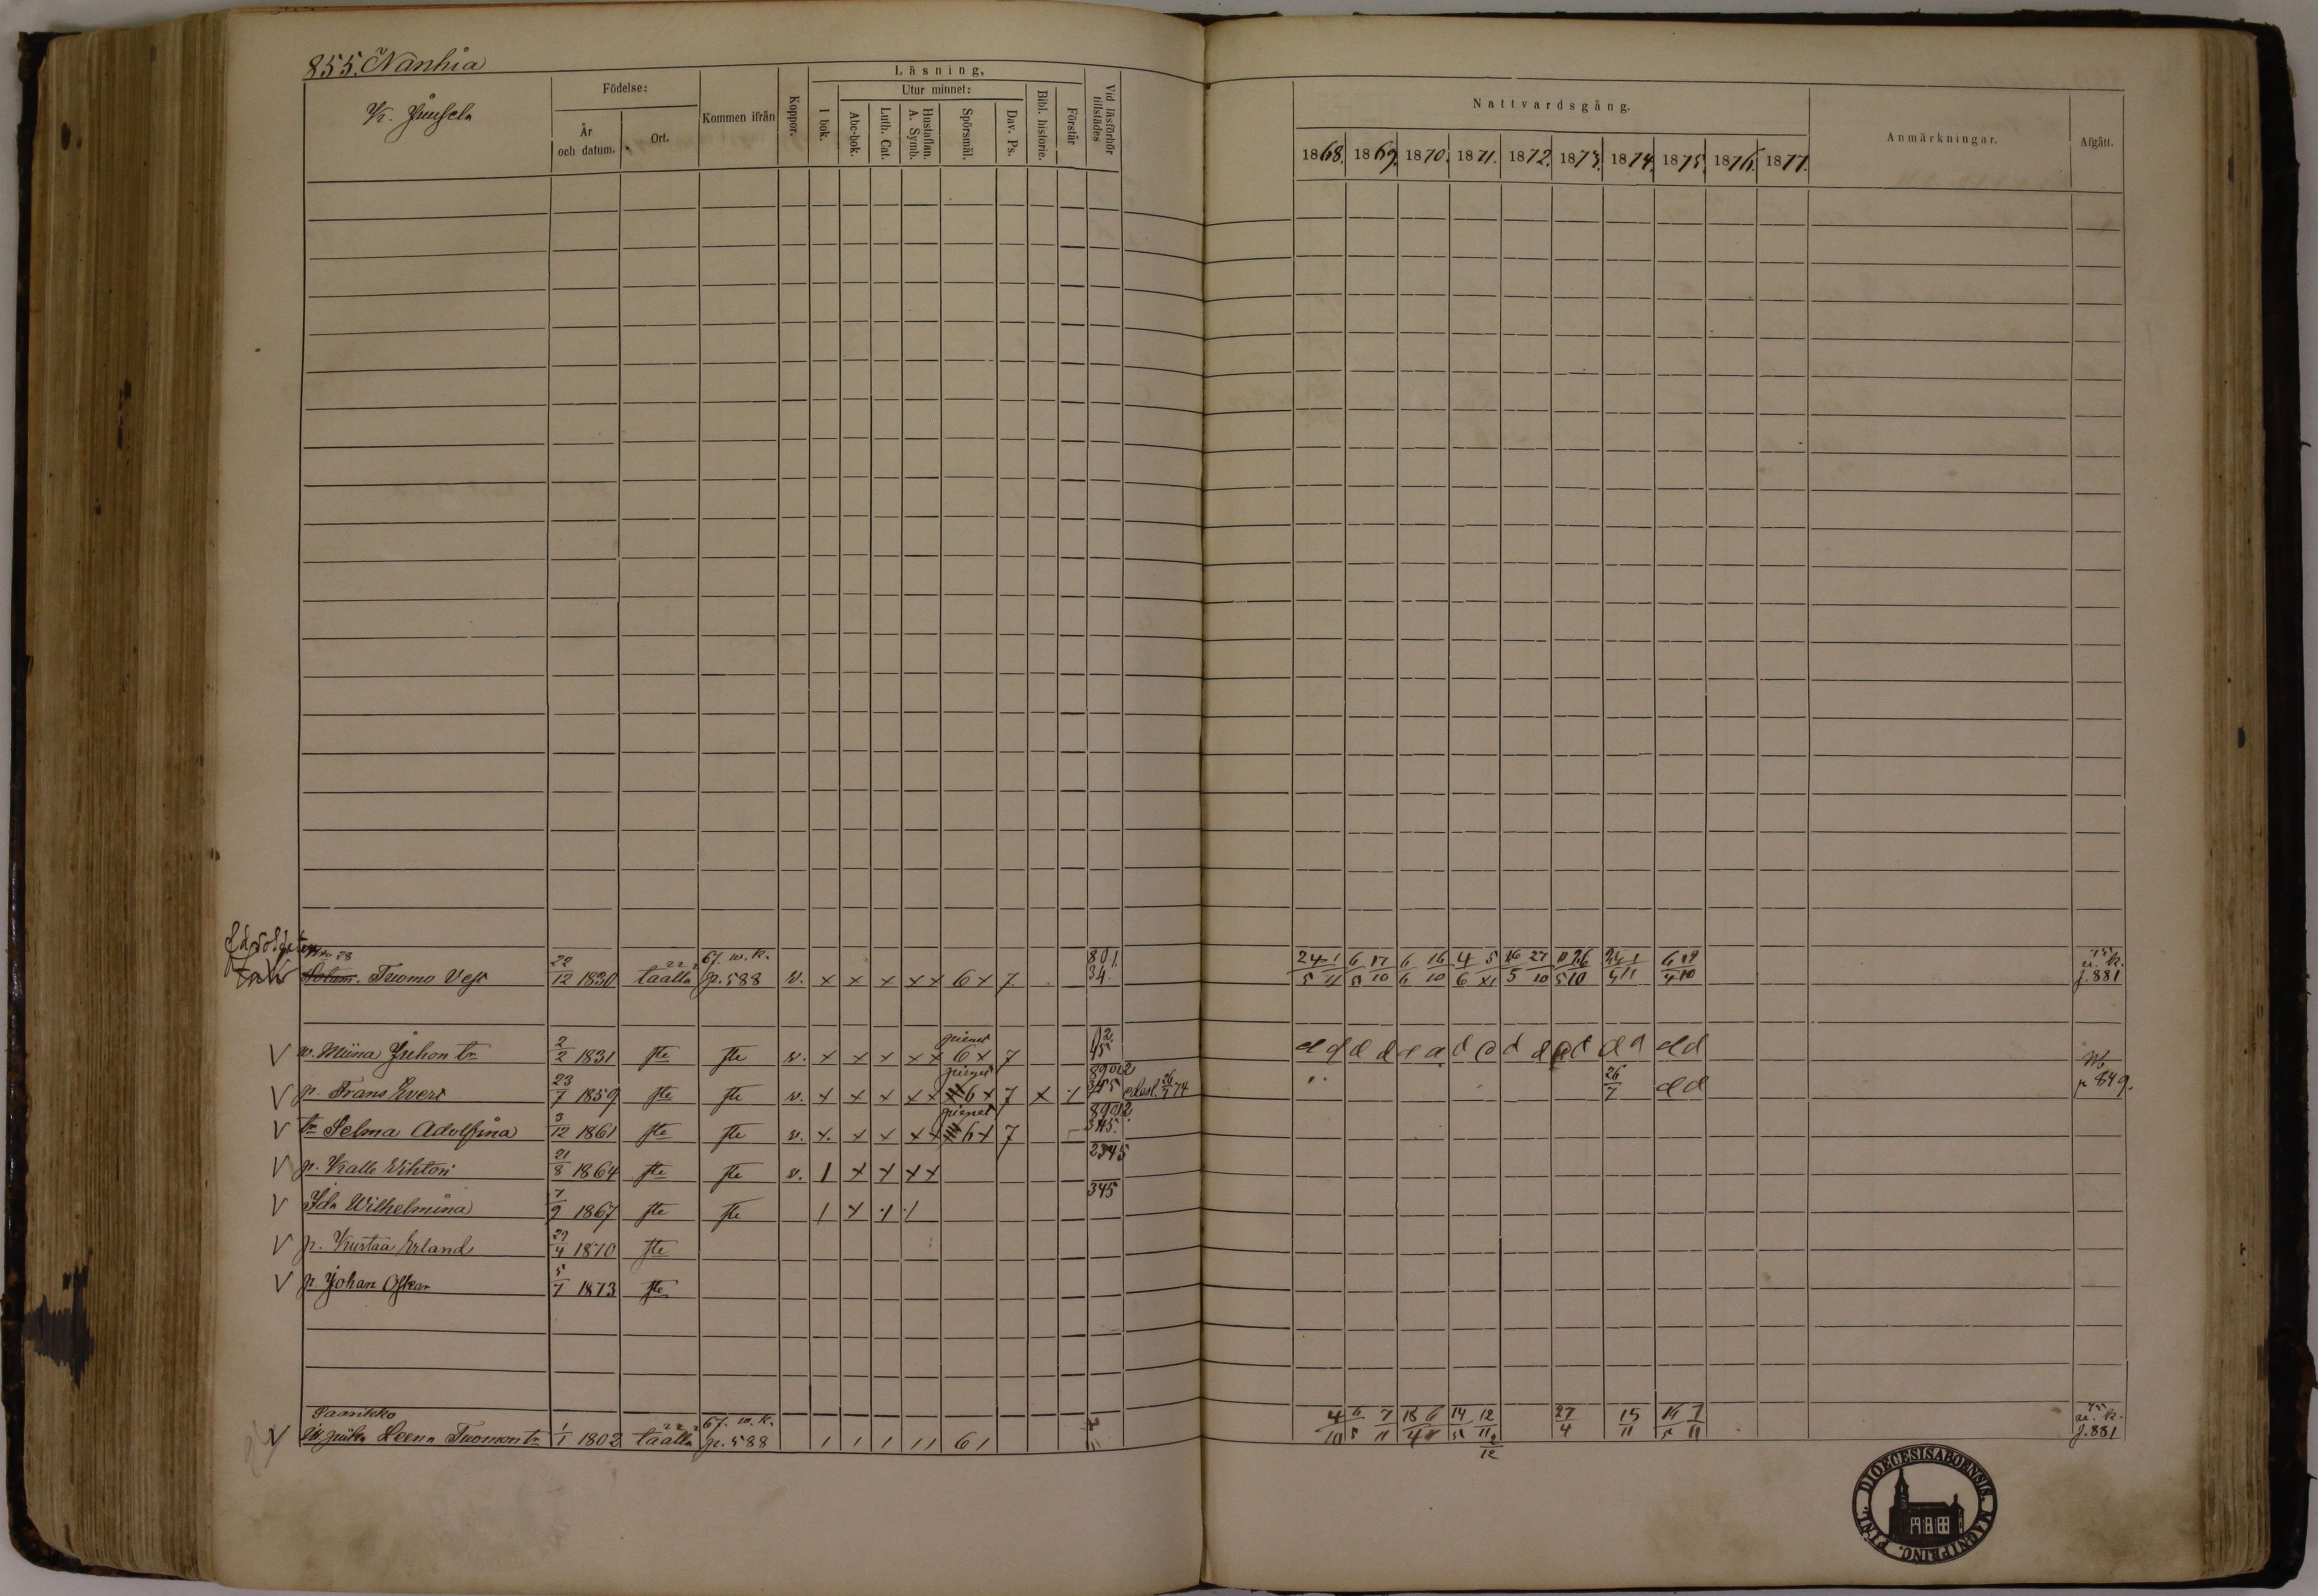 855. Nanhia
K. Junsela
Födelse:
År och datum.
Ort.
Kommen ifrån
Koppor.
Läsning,
I bok.
Utur minnet:
Abc-bok.
Luth. Cat.
Hustaflan. A. Symb.
Spörsmål.
Dav. Ps.
Bibl. historie.
Förstår
Vid läsförhör tillstädes
Nattvardsgång.
1868. 1869. 1870. 1871. 1872. 1873. 1874. 1875. 1876. 1877.
Anmärkningar.
Afgått.
Tuomo Vest 22/12 1830 täällä 67. w. k. p. 588 v. x x x x x 6 x 7 801 34. 24/5 1/11 6/5 17/10 6/6 16/10 4/6 5/XI 16/5 27/10 10/5 26/10 6/4 19/10 u. k. p. 881
w. Miina Juhon tr 2/2 1831 ste ste v. x x x x x pienet 6 x 7 45 d d d d d d d d d d d d d d d d
p. Frans Evert 23/7 1859 ste ste v. x x x x x pienet 6 x 7 x 89012 345 26/7 74 26/7 d d p 849.
tr Selma Adolfina 3/12 1861 ste ste v. x x x x x pienet 6 x 7 89012 345.
p. Kalle Wihtori 21/8 1864 ste ste v. 1 x x x x 2345
Ida Wilhelmina 7/9 1867 ste ste 1 x 345
p. Kustaa Erland 29/4 1870 ste
p. Johan Oskar 5/7 1873 ste
Saarikko
Leena Tuomon tr 1/1 1802 täällä 67. w. k. p. 588 1 1 1 1 1 6 1 4/10 6/5 7/11 14/5 12/11 27/4 15/11 16/5 7/11 75 u. k. p. 881
DIOECESIS ABOENSIS. MAGNI PRINC. FINL.